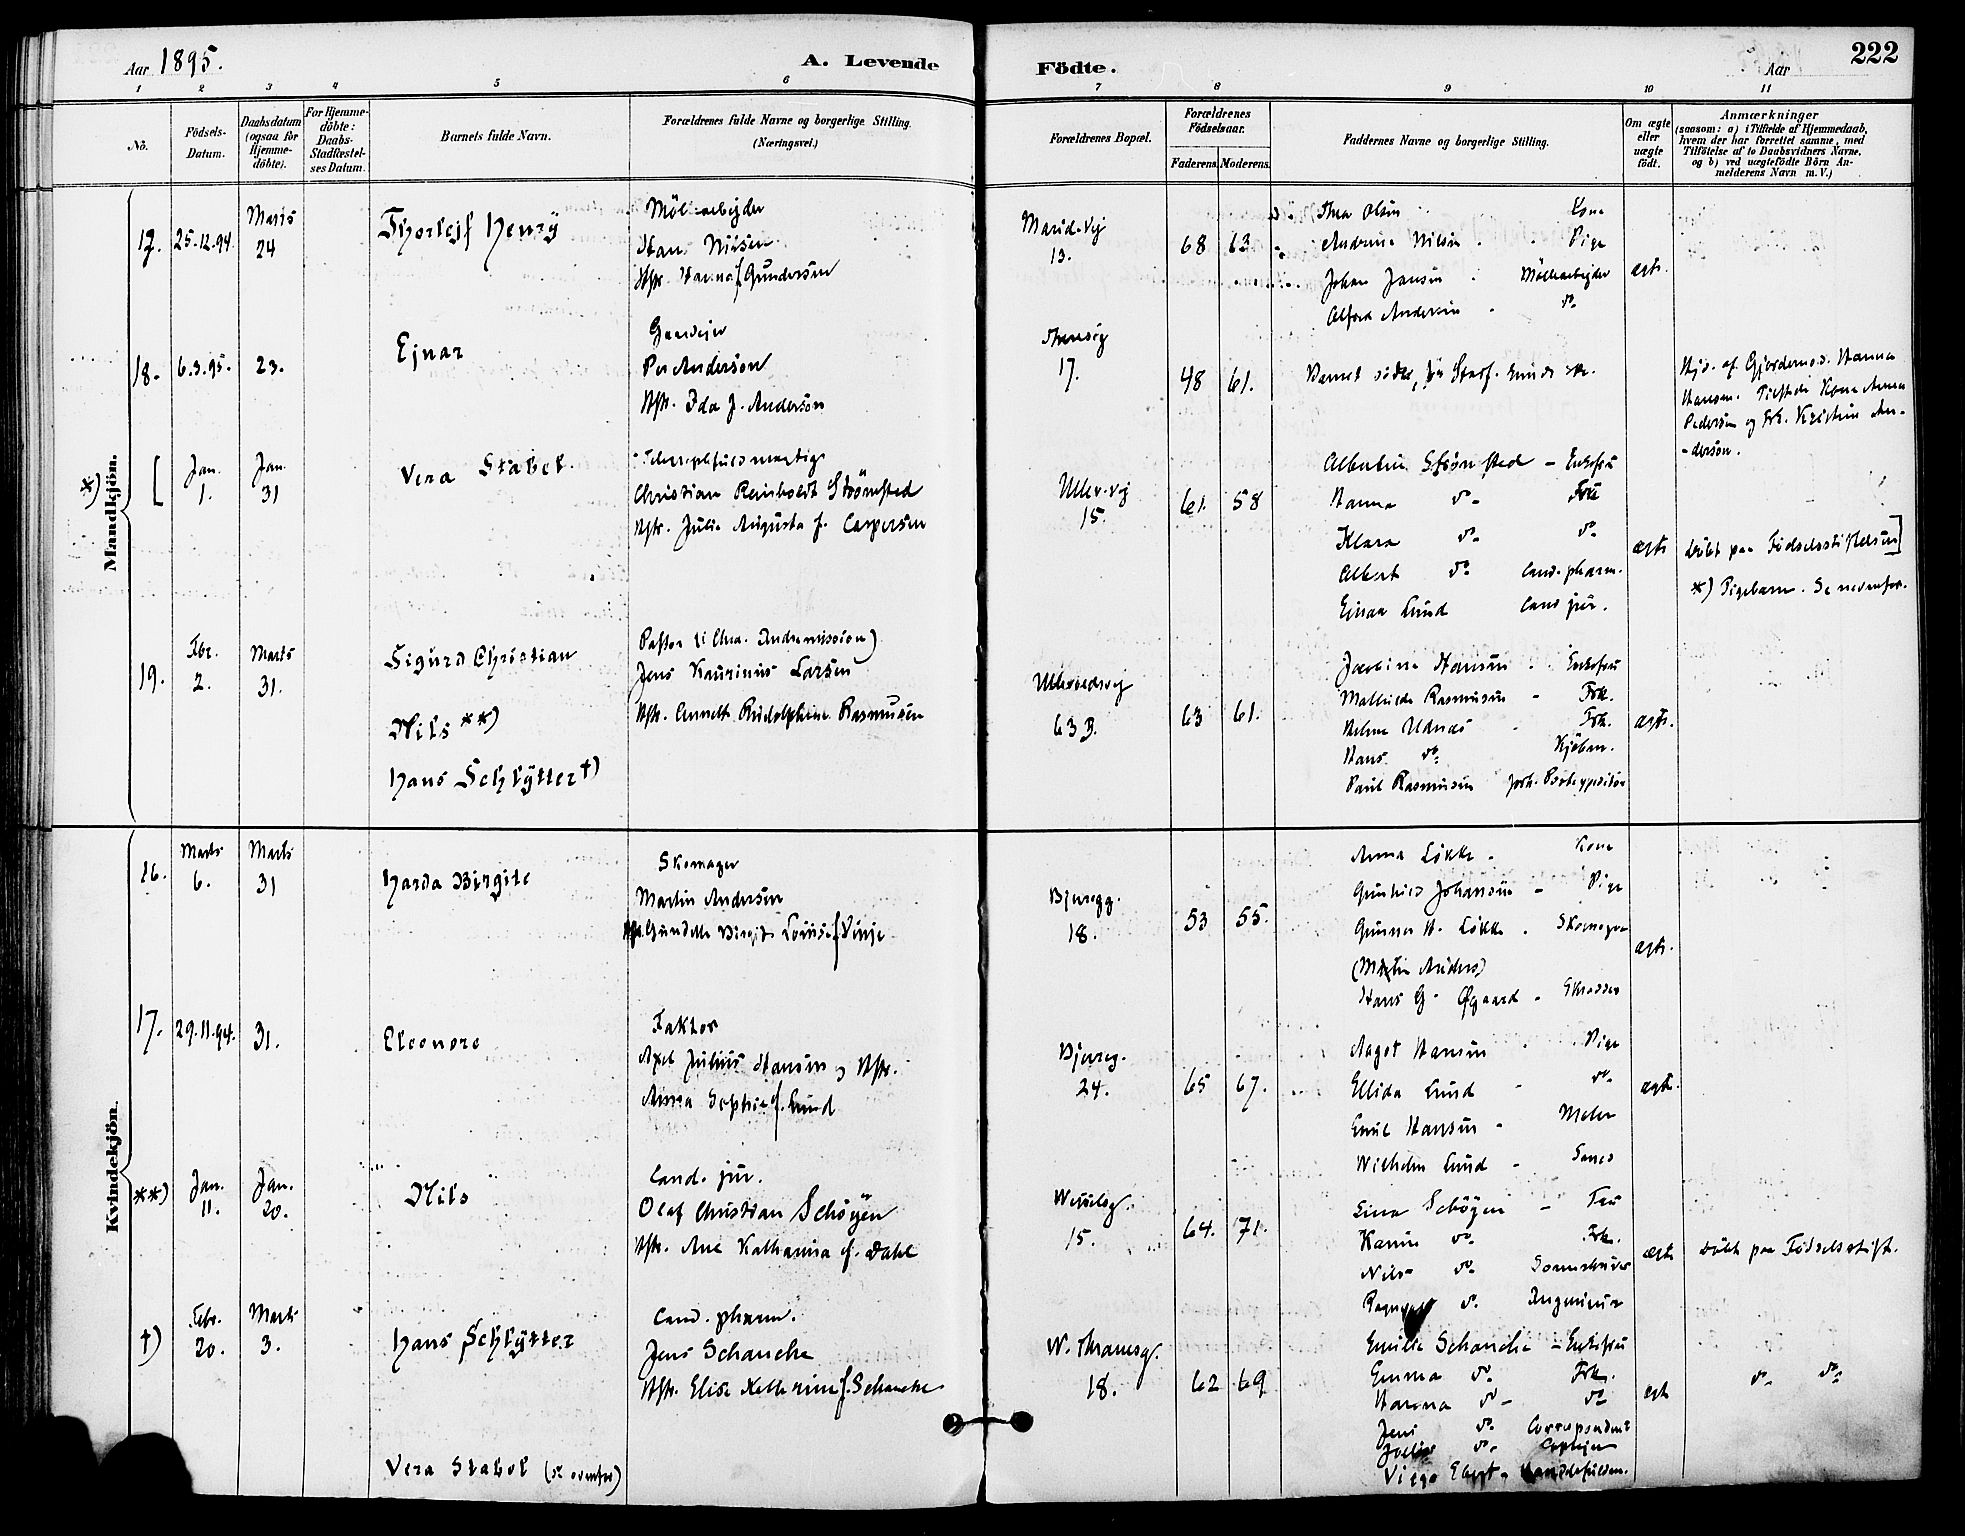 Aar 1895.
A. Levende Födte.
Aar
222
1 2 3 4 5 6 7 8 9 10 11
No.
Födsels-Datum.
Daabsdatum (ogsaa for Hjemme-döbte).
For Hjemme-döbte: Daabs-Stadfæstel-ses Datum.
Barnets fulde Navn.
Forældrenes fulde Navne og borgerlige Stilling. (Næringsvei.)
Forældrenes Bopæl.
Forældrenes Födselsaar.
Faderens. Moderens.
Faddernes Navne og borgerlige Stilling.
Om ægte eller uægte födt.
Anmærkninger
(saasom: a) i Tilfælde af Hjemmedaab, hvem der har forrettet samme, med Tilföielse af to Daabsvidners Navne, og b) ved uægtefödte Börn An-melderens Navn m. V.)
Mandkjön.
17. 25.12.94. Marts 24
Thorleif Henry
Hans Nilsen
Hstr. Hanna f. Gundersen
Marid.vej 13.
68 63
Thea Olsen Kone
Andrine Nilsen Pige
Johan Jansen Möllearbejder
Alfred Andersen do
ægte.
18. 6.3.95. 23.
Ejnar
Gaardejer
Per Anderson
Hstr. Ida J. Anderson
17.
48 61.
Hjd. af Gjordemod. Hanna
Hansen. Tilstede Kone Anna
Pedersen og Frk. Kristine An-
-derson.
*) [ Jan. 1. Jan. 31
Vera Stabel
Christian Reinholdt Strömsted
Hstr. Julie Augusta f. Caspersen
Ullev.vej 15.
61. 58
Albertine Strömsted - Enkefru
Hanna do - Frk
Klara do do
Albert do cand. pharm.
Einar Lund cand jur.
ægte
döbt paa Fødselsstiftelsen]
*) Pigebarn. Se nedenfor.
19. Fbr. 2. Marts 31.
Sigurd Christian
Pastor (i Chra. Indremission)
Jens Laurinius Larsen
Hstr. Annette Rudolphine Rasmusen
Ullevoldsvej 63 B.
63 61.
Jacobine Hansen - Enkefru
Mathilde Rasmusen - Frk.
Helene Udnæs - Frk.
Hans do Kjöbm.
Paul Rasmusen
ægte.
Nils **)
Hans Schlytter †)
Kvindekjön.
16. Marts 6. Marts 31
Harda Birgite
Skomager
Martin Andersen
Hstr. Gundelle Birgite Lovise f. Vinje
Bjeregg. 18.
53 55.
Anna Løkke - Kone
Gunhild Johansen - Pige
Gunnar H. Løkke - Skomager
(Martin Anders)
Hans G. Øgaard - Skrædder
ægte.
17. 29.11.94. 31.
Eleonore
Faktor
Axel Julius Hansen og Hstr.
Anna Sophie f. Lund
Bjereg. 24.
65 67.
Aagot Hansen - Pige
Ellida Lund - do
Emil Hansen - Maler
Wilhelm Lund -
ægte.
**) Jan. 11. Jan. 20.
Nils
Cand. jur.
Olaf Christian Schøyen
Hstr. Ane Katharina f. Dahl
Wesselsg. 15.
64. 71.
Lina Schøyen - Fru
Karen do Frk.
Nils do Sorenskriver
Ragnvald do Ingeniør
ægte
döbt paa Fødselsstift.
†) Febr. 20. Marts 3.
Hans Schlytter
Cand. pharm.
Jens Schanche
Hstr. Elise Katharine f. Schanche
W. Thranesg. 18.
62 69
Emilie Schanche - Enkefru
Emma do Frk.
Hanna do - do
Jens do Correspondent
do - Captejn
ægte
do do
Vera Stabel (se ovenfor)